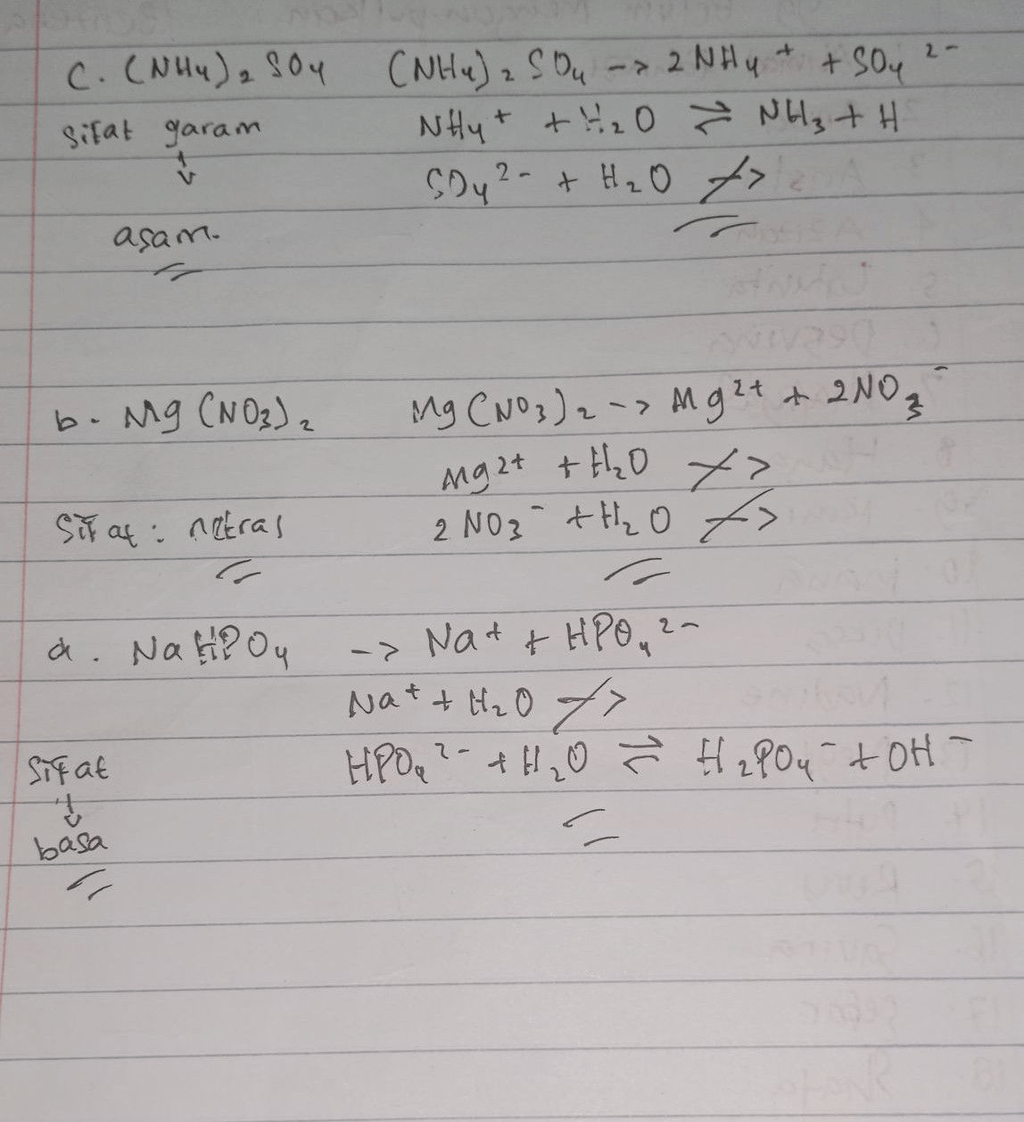 c. (NH4)2 SO4 (NH4)2 SO4 -> 2 NH4+ + SO4 2-
Sifat garam NH4+ + H2O ⇌ NH3 + H
↓ SO4 2- + H2O -/>
asam.
b. Mg (NO3)2 Mg (NO3)2 -> Mg2+ + 2NO3-
Mg2+ + H2O -/>
Sifat : netral 2 NO3- + H2O -/>
a. NaHPO4 -> Na+ + HPO4 2-
Na+ + H2O -/>
Sifat HPO4 2- + H2O ⇌ H2PO4- + OH-
↓
basa